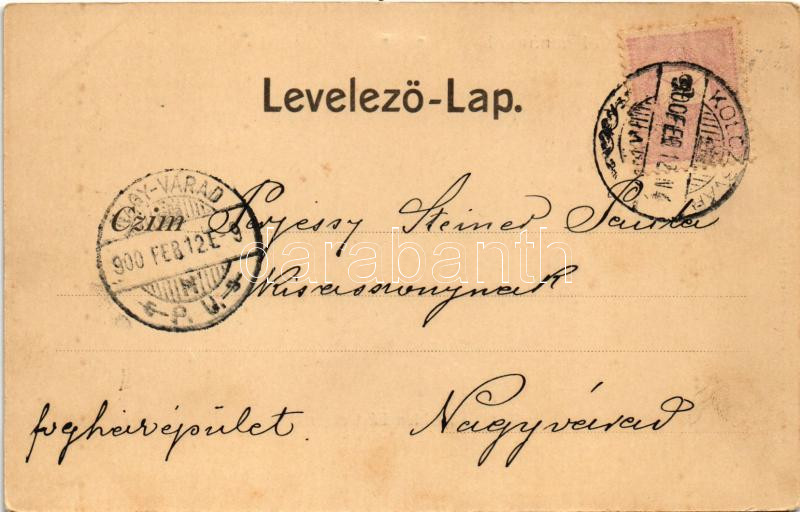 Levelező-Lap.
KOLOZSVÁR
900 FEB 12 N 4
NAGY-VÁRAD
900 FEB 12 E 9
P. U.
Czim Perjessy Steiner Paula
Kisasszonynak
fogházépület. Nagyvárad
darabanth